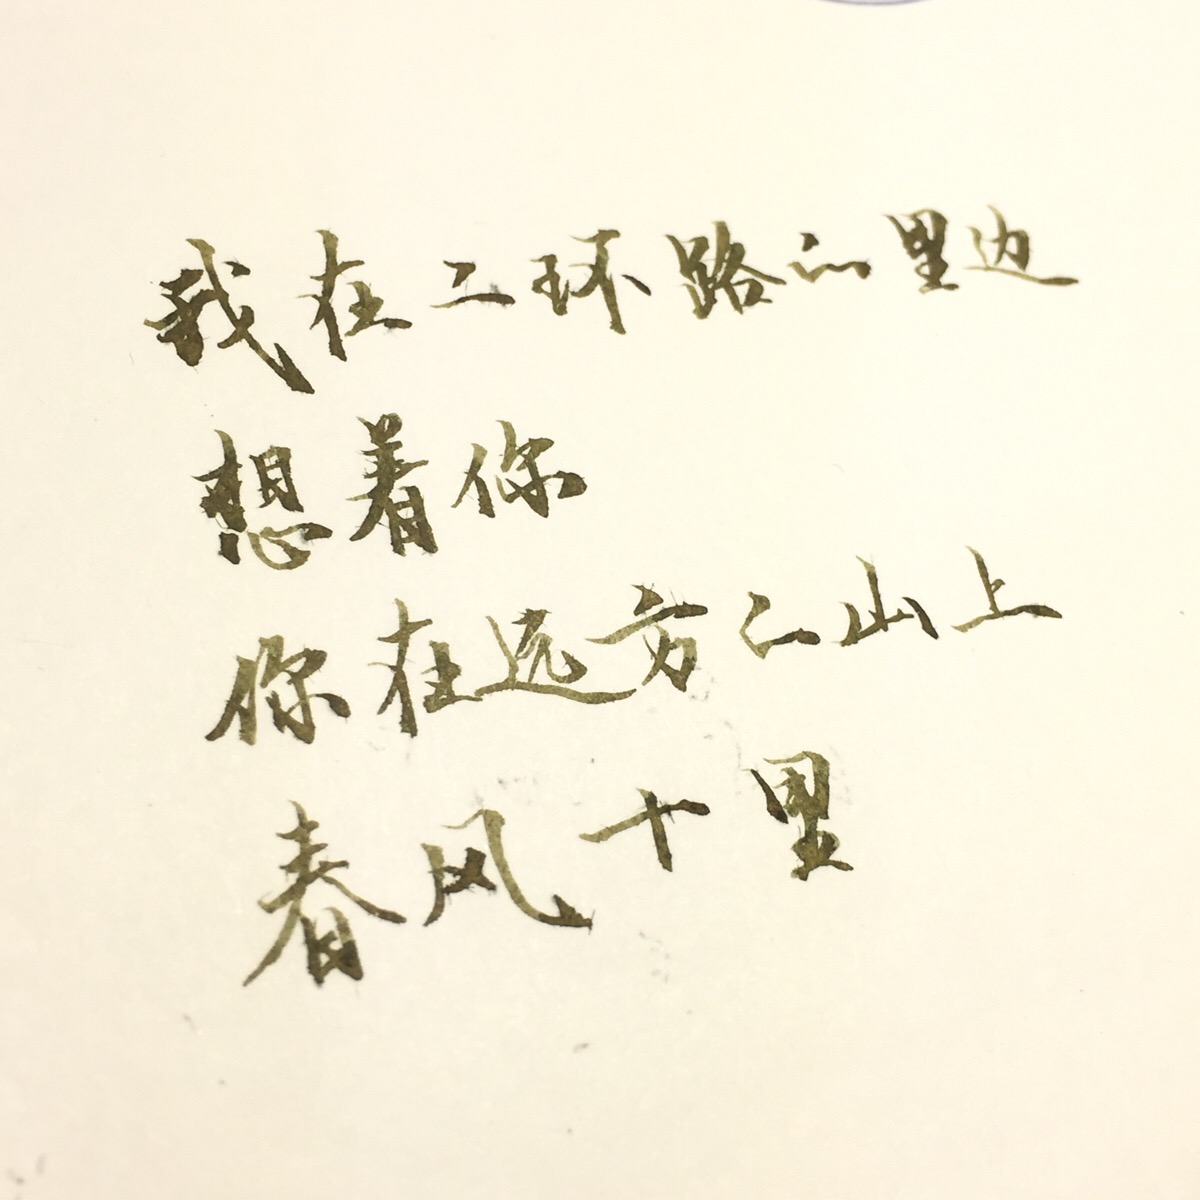 我在二环路的里边
想着你
你在远方的山上
春风十里